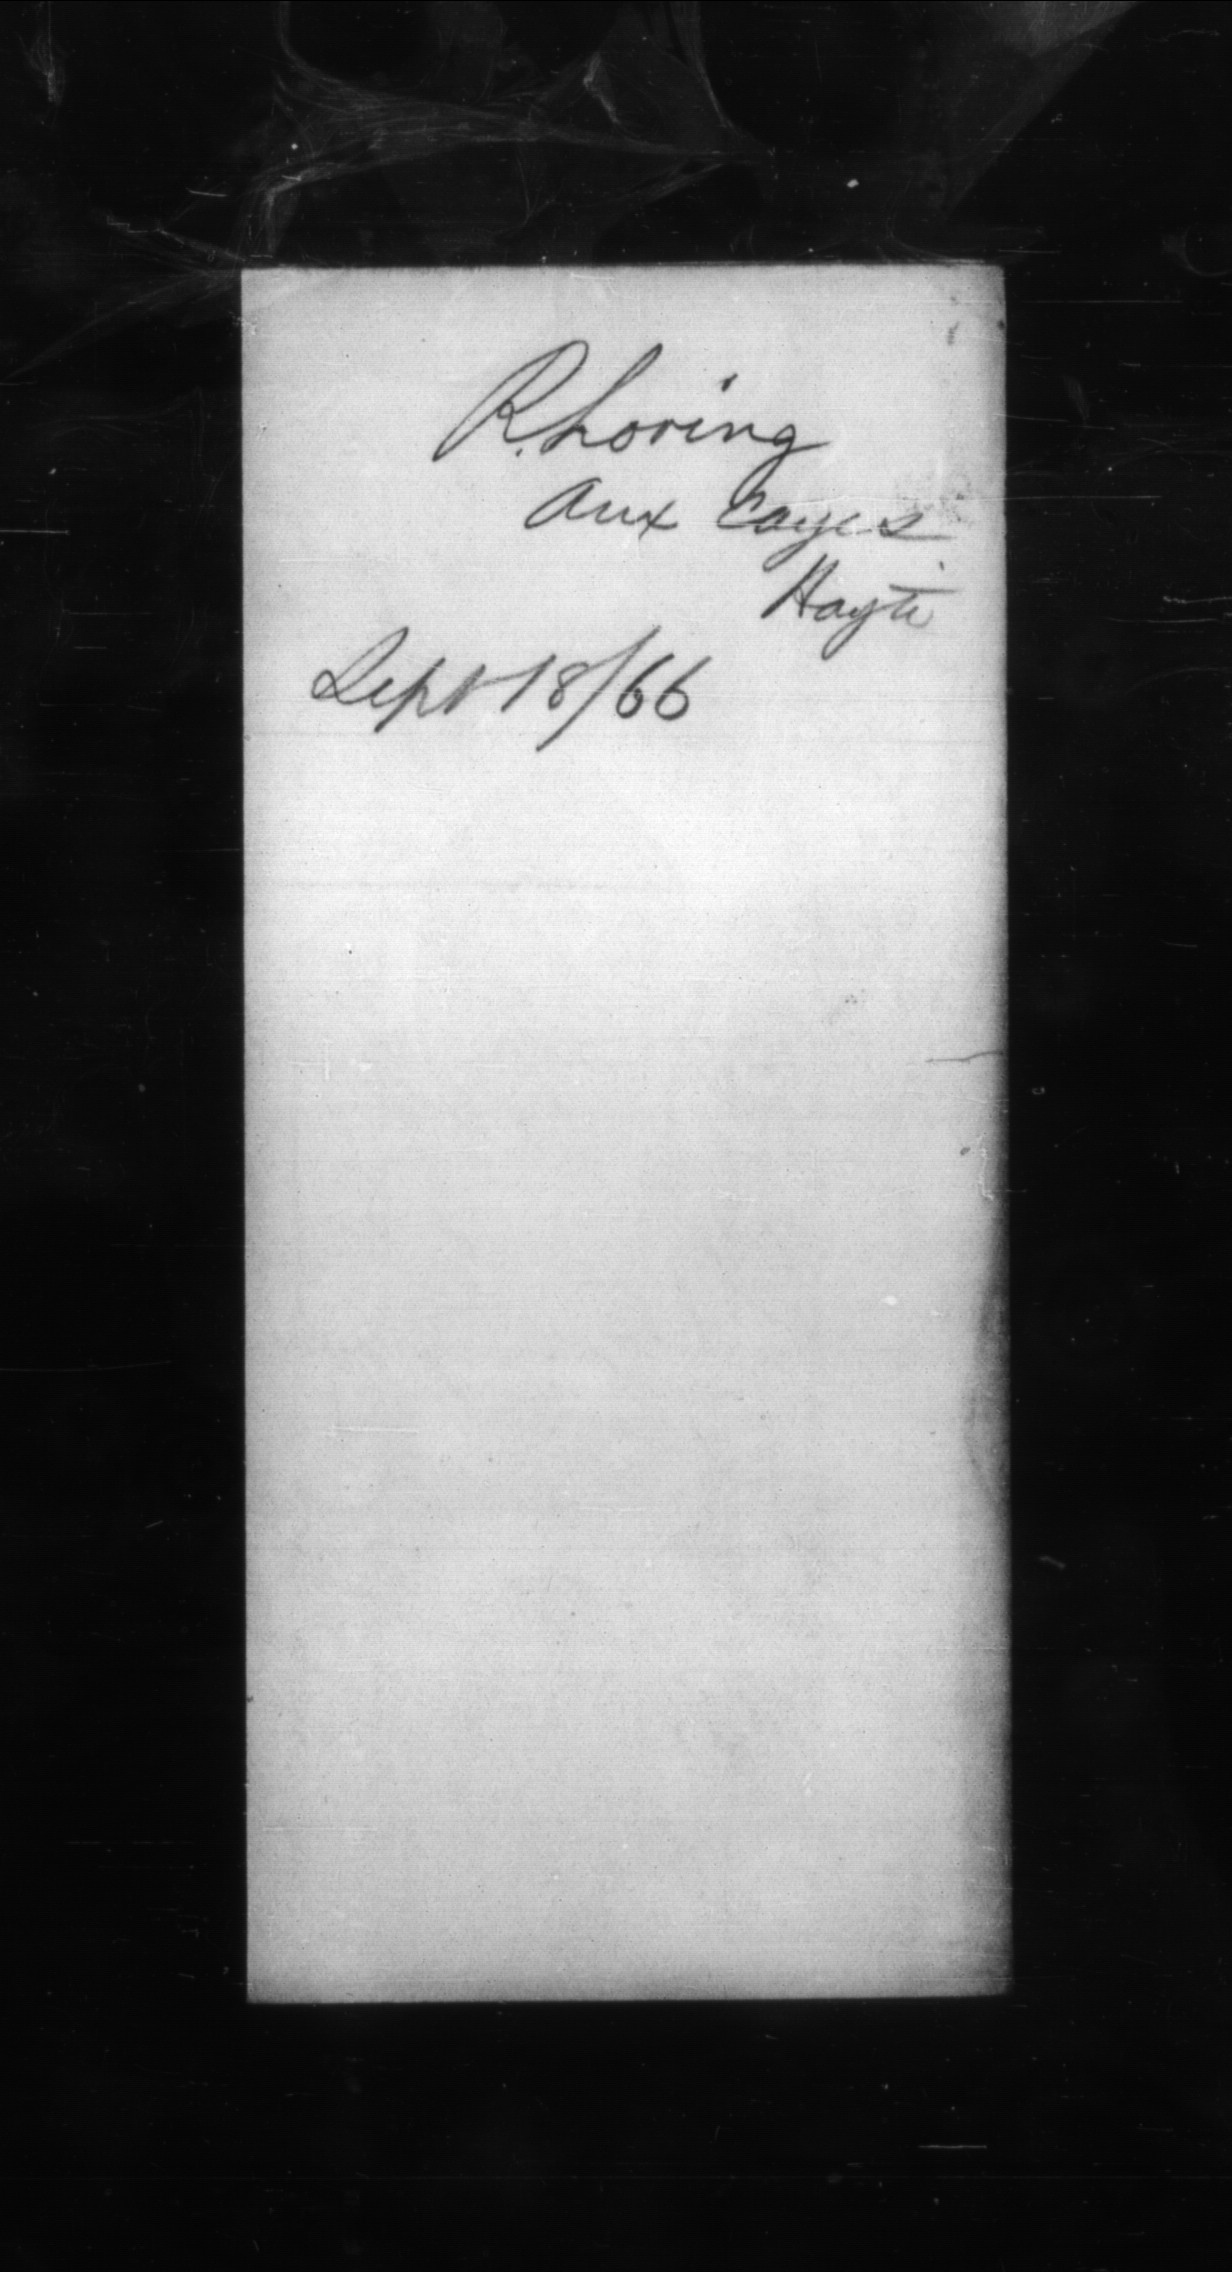 R. Loring
Aux Cayes
Hayti
Sept 18/66